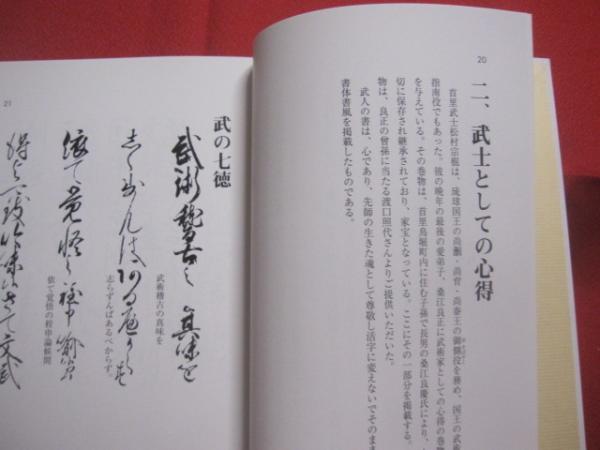 20
二、武士としての心得
首里武士松村宗棍は、琉球国王の尚灝・尚育・尚泰王の御側役を務め、国王の武術
指南役でもあった。彼の晩年の最後の愛弟子、桑江良正に武術家としての心得の巻
を与えている。その巻物は、首里鳥堀町内に住む子孫で長男の桑江良慶氏により、
切に保存され継承されており、家宝となっている。ここにその一部分を掲載する。
物は、良正の曾孫に当たる渡口照代さんよりご提供いただいた。
武人の書は、心であり、先師の生きた魂として尊敬し活字に変えないでそのま
書体書風を掲載したものである。
21
武の七徳
武術稽古之真味を
武術稽古の真味を
志らずんばあるべからず。
依て覚悟の程申諭候間